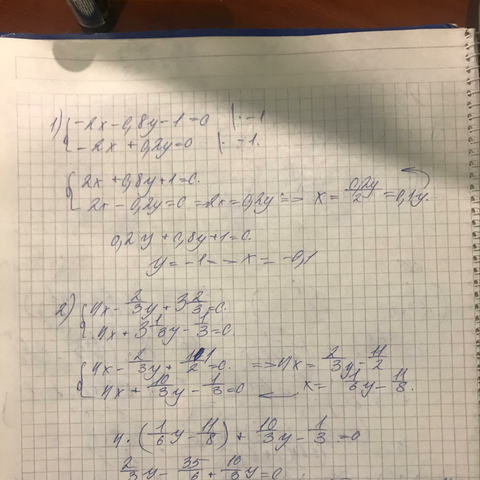 1) { -2x - 0,8y - 1 = 0 | · -1
{ -2x + 0,2y = 0 | · -1.
{ 2x + 0,8y + 1 = 0.
{ 2x - 0,2y = 0 => 2x = 0,2y => x = 0,2y/2 = 0,1y.
0,2y + 0,8y + 1 = 0.
y = -1 => x = -0,1
2) { 4x - 2/3y + 3 2/3 = 0.
{ 4x + 3 1/3y - 1/3 = 0.
{ 4x - 2/3y + 11/2 = 0. => 4x = 2/3y - 11/2
{ 4x + 10/3y - 1/3 = 0 x = 1/6y - 11/8.
4 · (1/6y - 11/8) + 10/3y - 1/3 = 0
2/3y - 35/6 + 10/3y = 0